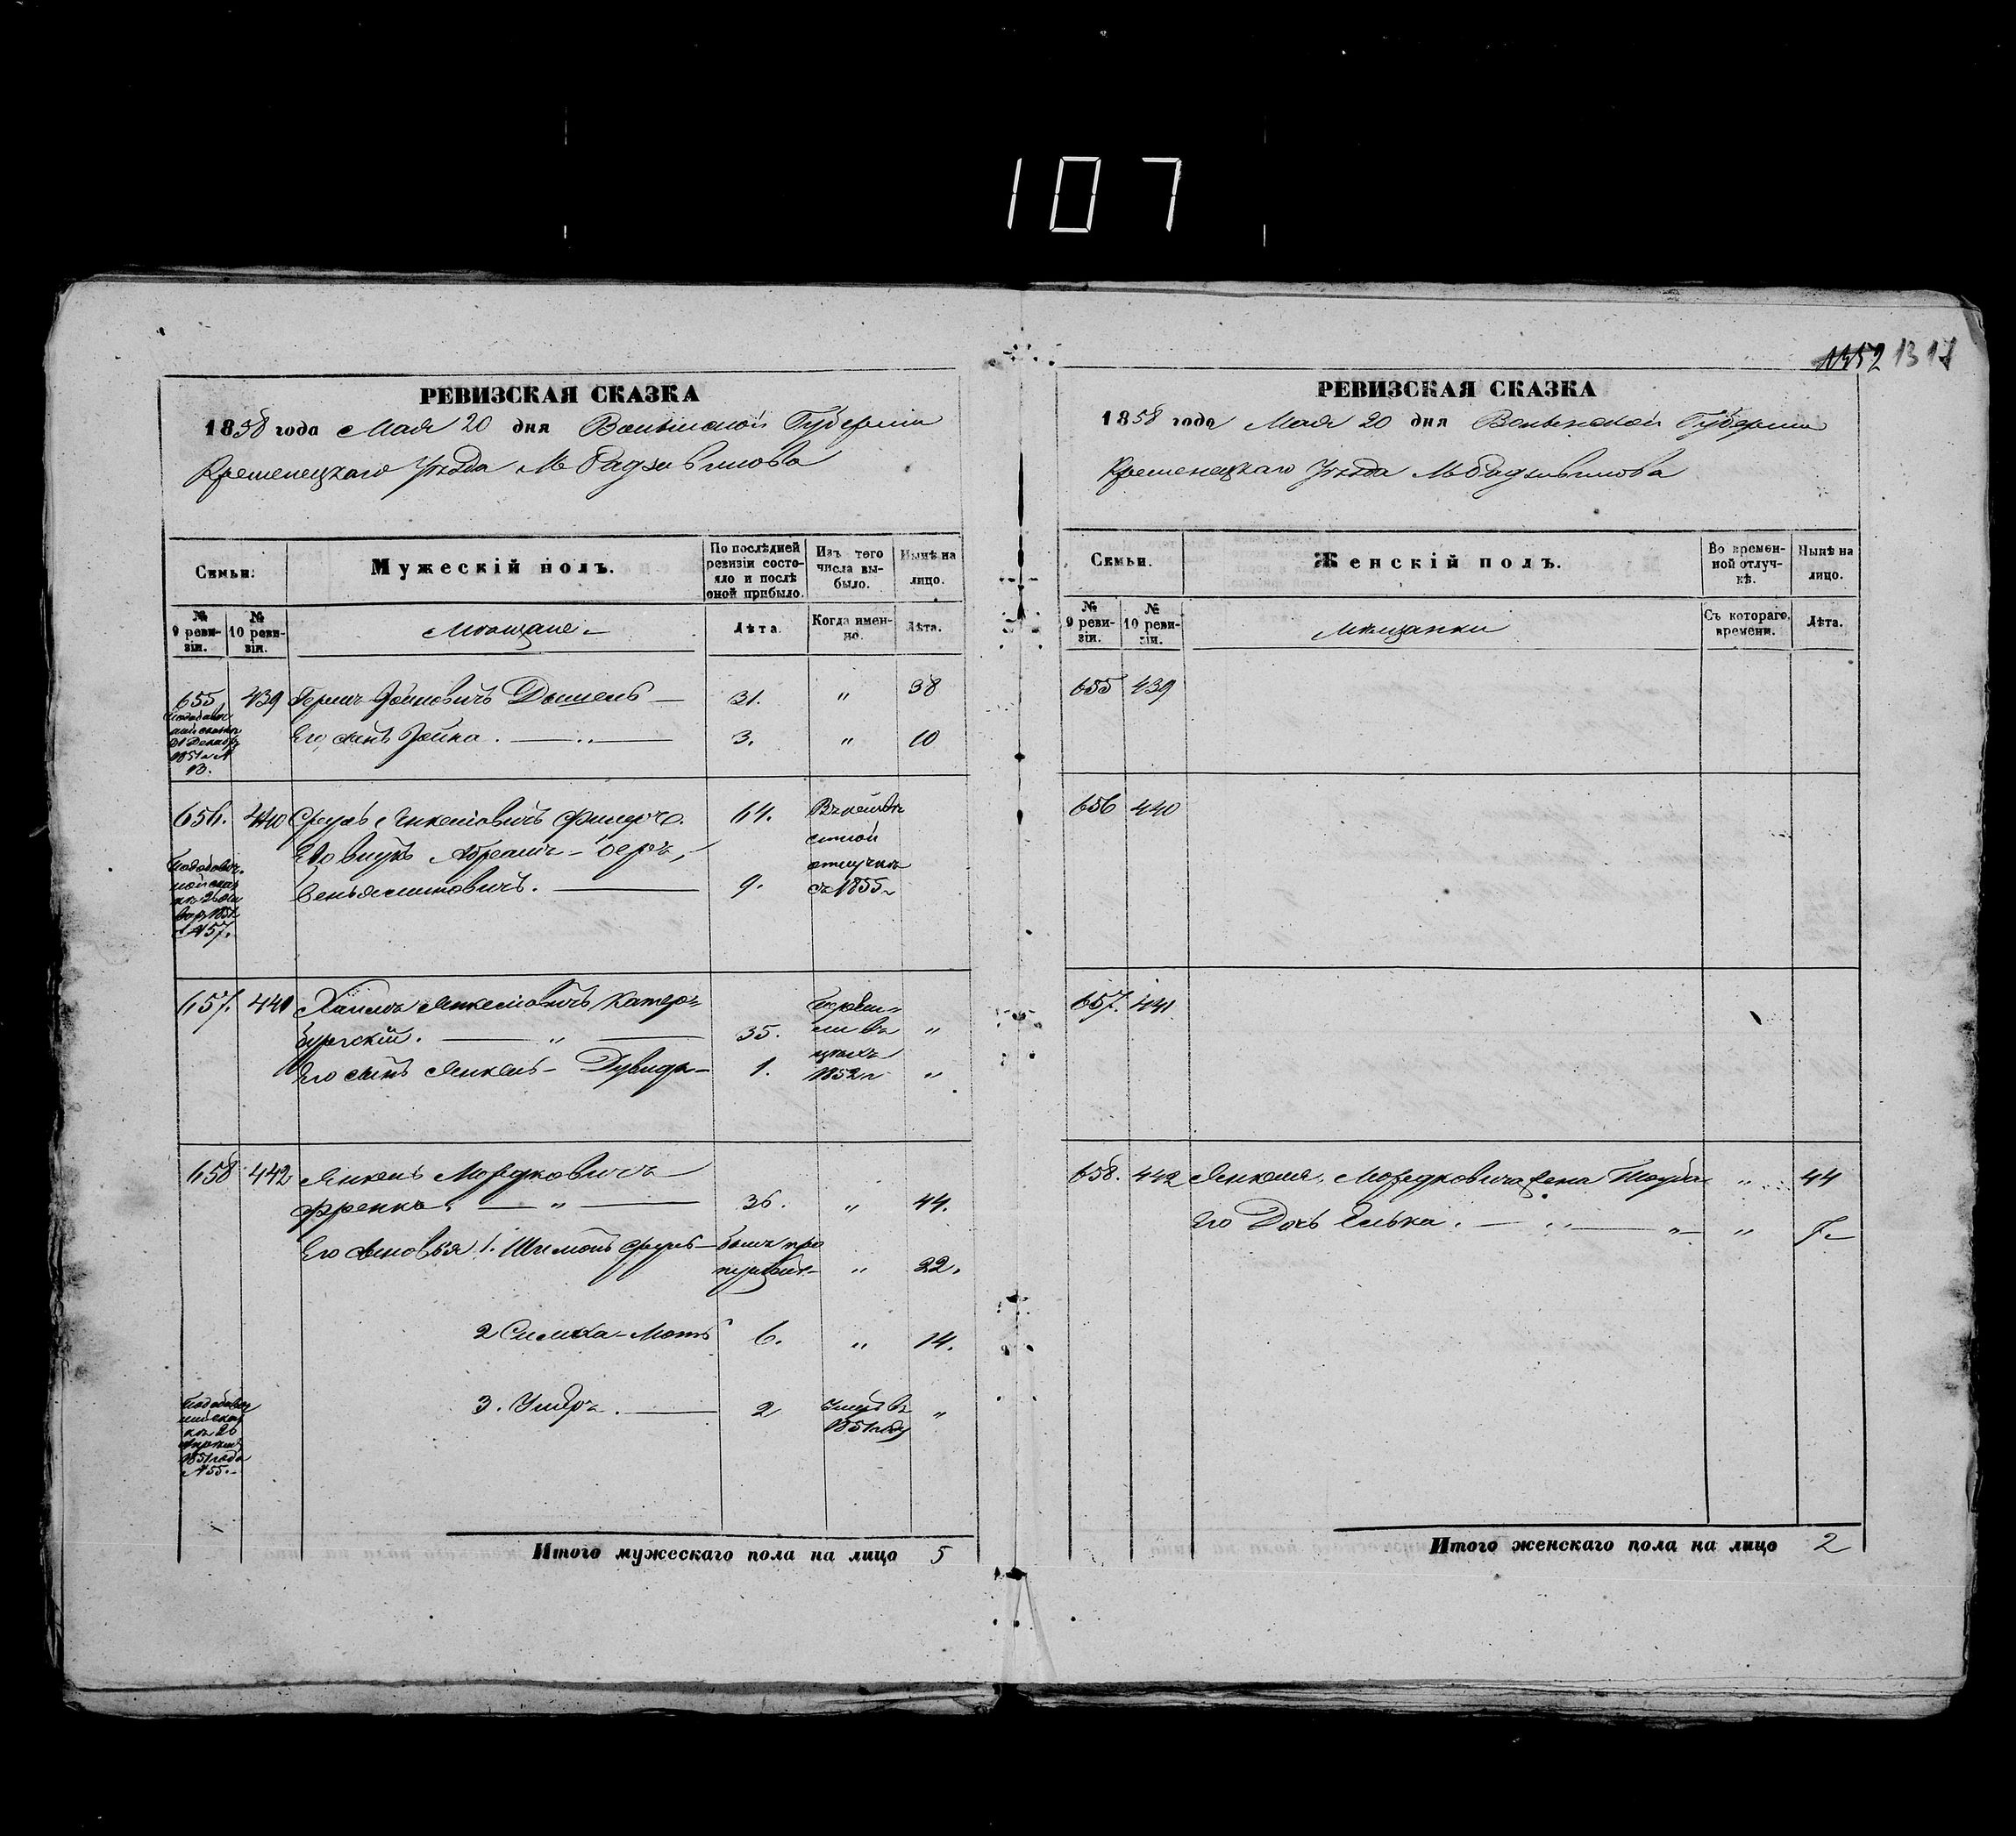 107
1352 1317
РЕВИЗСКАЯ СКАЗКА
1858 года Мая 20 дня Волынской Губерніи
Кременецкаго Уѣзда М Радзивилова
Семьи.
Мужескій полъ.
По послѣдней ревизіи состояло и послѣ оной прибыло.
Изъ того числа выбыло.
Нынѣ на лицо.
№ 9 ревизіи.
№ 10 ревизіи.
Мѣщане
Лѣта.
Когда именно.
Лѣта.
655 439 Гершъ Іойновичъ 31. " 38
Его сынъ Іойна. 3. " 10
656. 440 Сруль Янкелевичъ 64.
Его внукъ Абрамъ-Беръ
Веньяминовичъ. 9. съ 1855
657. 441 Хаимъ Янкелевичъ Катер-
бургскій. " 35. "
Его сынъ Янкель-Дувидъ 1. 1852 г "
658 442 Янкель Мордковичъ
Френкъ. " 36. " 44.
Его сыновья 1. Шлемонъ Сруль былъ про
пущенъ " 22.
2 Симха-Моть 6. " 14.
3. Ушеръ. 2 умеръ въ "
1851 году
Итого мужескаго пола на лицо 5
РЕВИЗСКАЯ СКАЗКА
1858 года Мая 20 дня Волынской Губерніи
Кременецкаго Уѣзда М Радзивилова
Семьи.
Женскій полъ.
Во временной отлучкѣ.
Нынѣ на лицо.
№ 9 ревизіи.
№ 10 ревизіи.
Мѣщанки
Съ котораго времени.
Лѣта.
655 439
656 440
657. 441
658. 442 Янкеля Мордковича жена Тауба " 44
Его Дочь Элька. " "
Итого женскаго пола на лицо 2